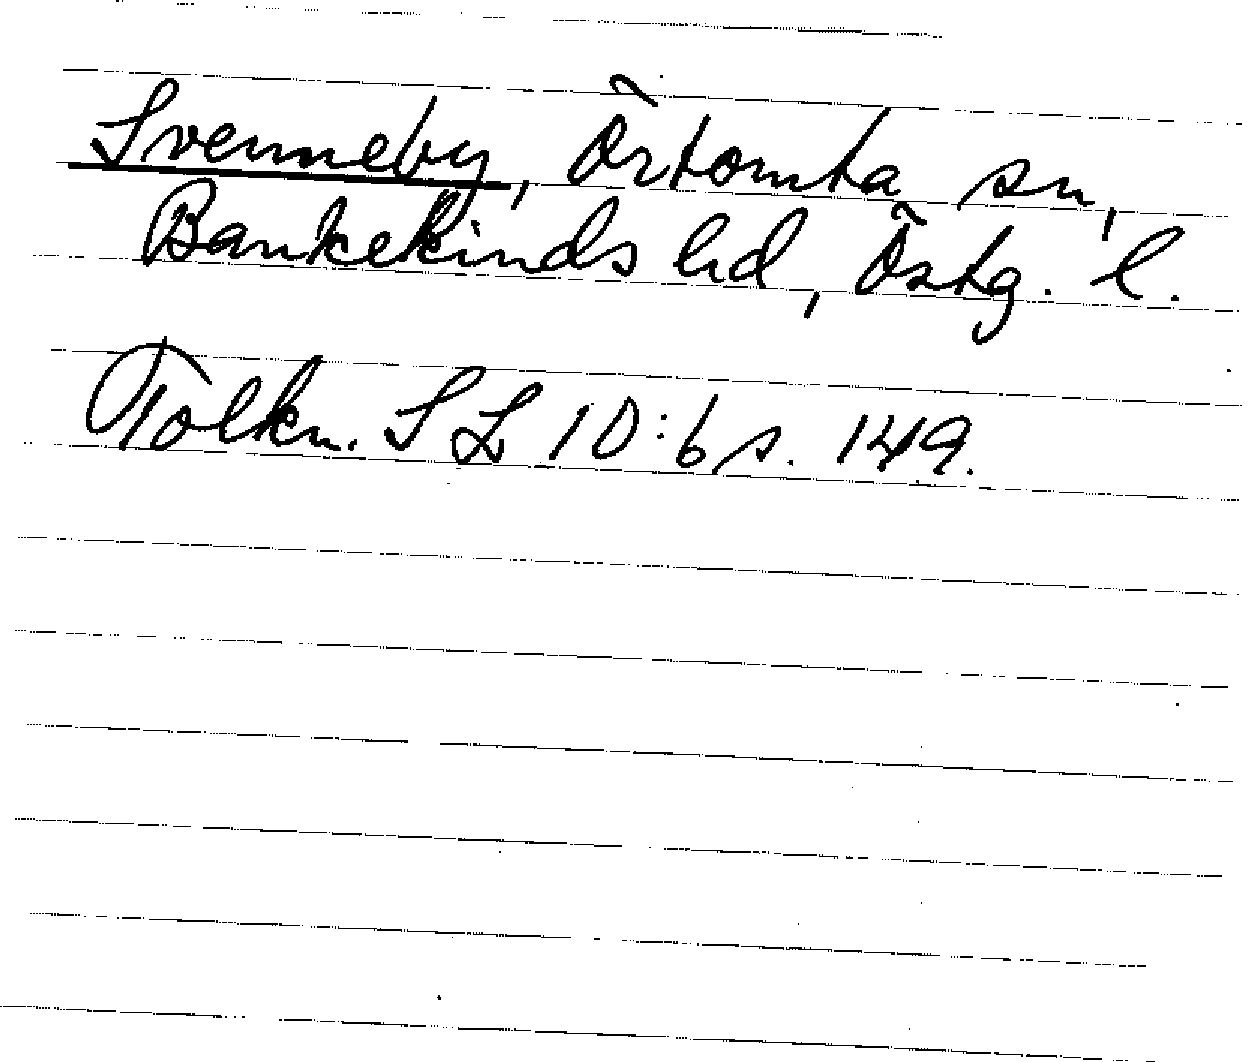 Svenneby, Örtomta sn,
Bankekinds hd, Östg. l.
Tolkn. SL 10:6 s. 149.